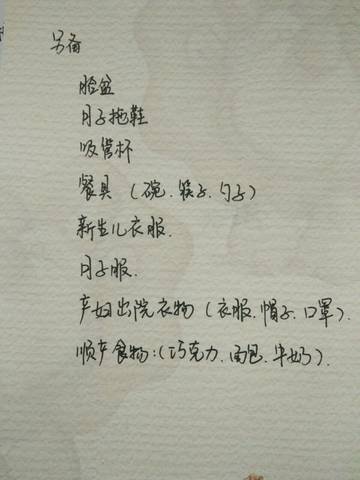 另备
脸盆
月子拖鞋
吸管杯
餐具（碗、筷子、勺子）
新生儿衣服.
月子服.
产妇出院衣物（衣服.帽子.口罩）.
顺产食物:（巧克力.面包.牛奶）.